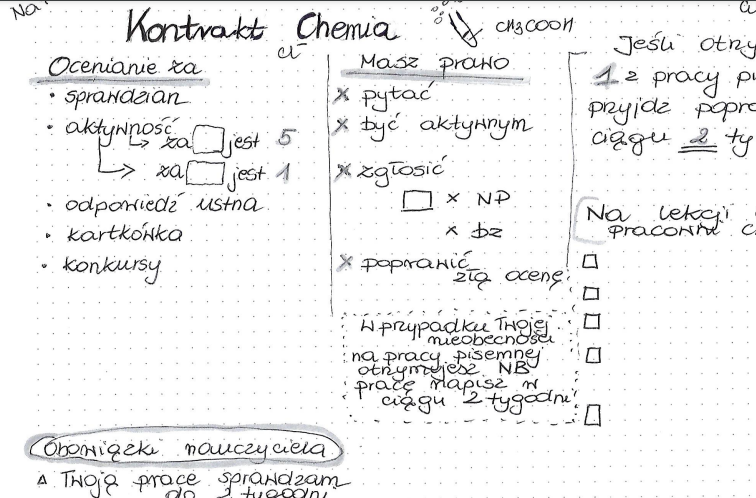 Na
Kontrakt Chemia
CH3COOH
Cl⁻
Ocenianie za
• sprawdzian
• aktywność
za jest 5
za jest 1
• odpowiedź ustna
• kartkówka
• konkursy
Masz prawo
x pytać
x być aktywnym
x zgłosić
x NP
x bz
x poprawić
złą ocenę
W przypadku Twojej
nieobecności
na pracy pisemnej
otrzymujesz NB
pracę napisz w
ciągu 2 tygodni
Jeśli otrzy
1 z pracy pi
przyjdź popra
ciągu 2 ty
Na lekcji
pracowni c
Obowiązki nauczyciela
Δ Twoją pracę sprawdzam
do 2 tygodni